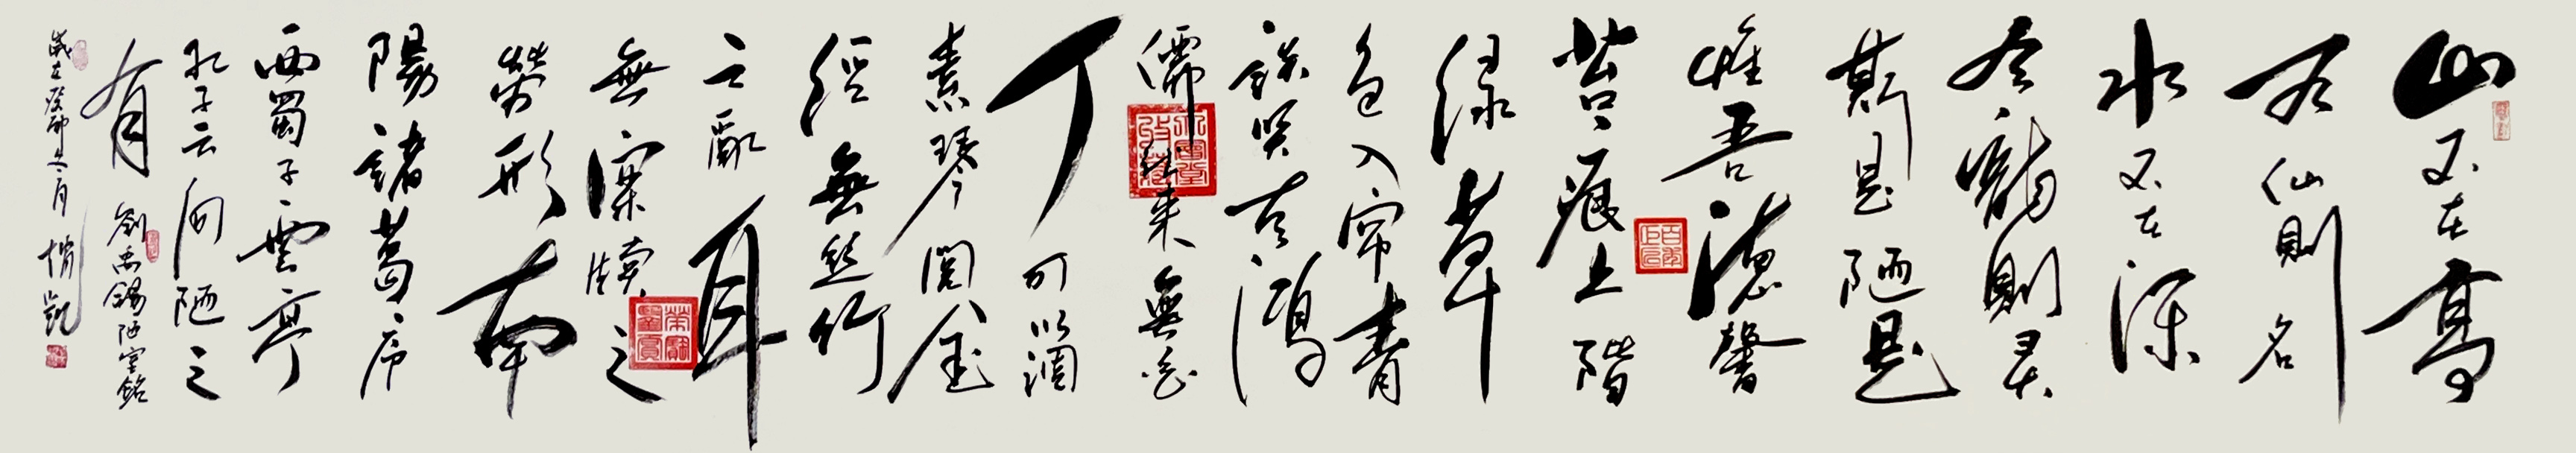 山不在高
有仙則名
水不在深
有龍則灵
斯是陋是
惟吾德馨
苔痕上階
绿草
色入帘青
談笑古鴻
儒往来無白
丁可以调
素琴閱金
經無丝竹
之亂耳
無案牍之
勞形南
陽諸葛序
西蜀子雲亭
孔子云何陋之
有 劉禹錫陋室銘
歲在癸卯冬月